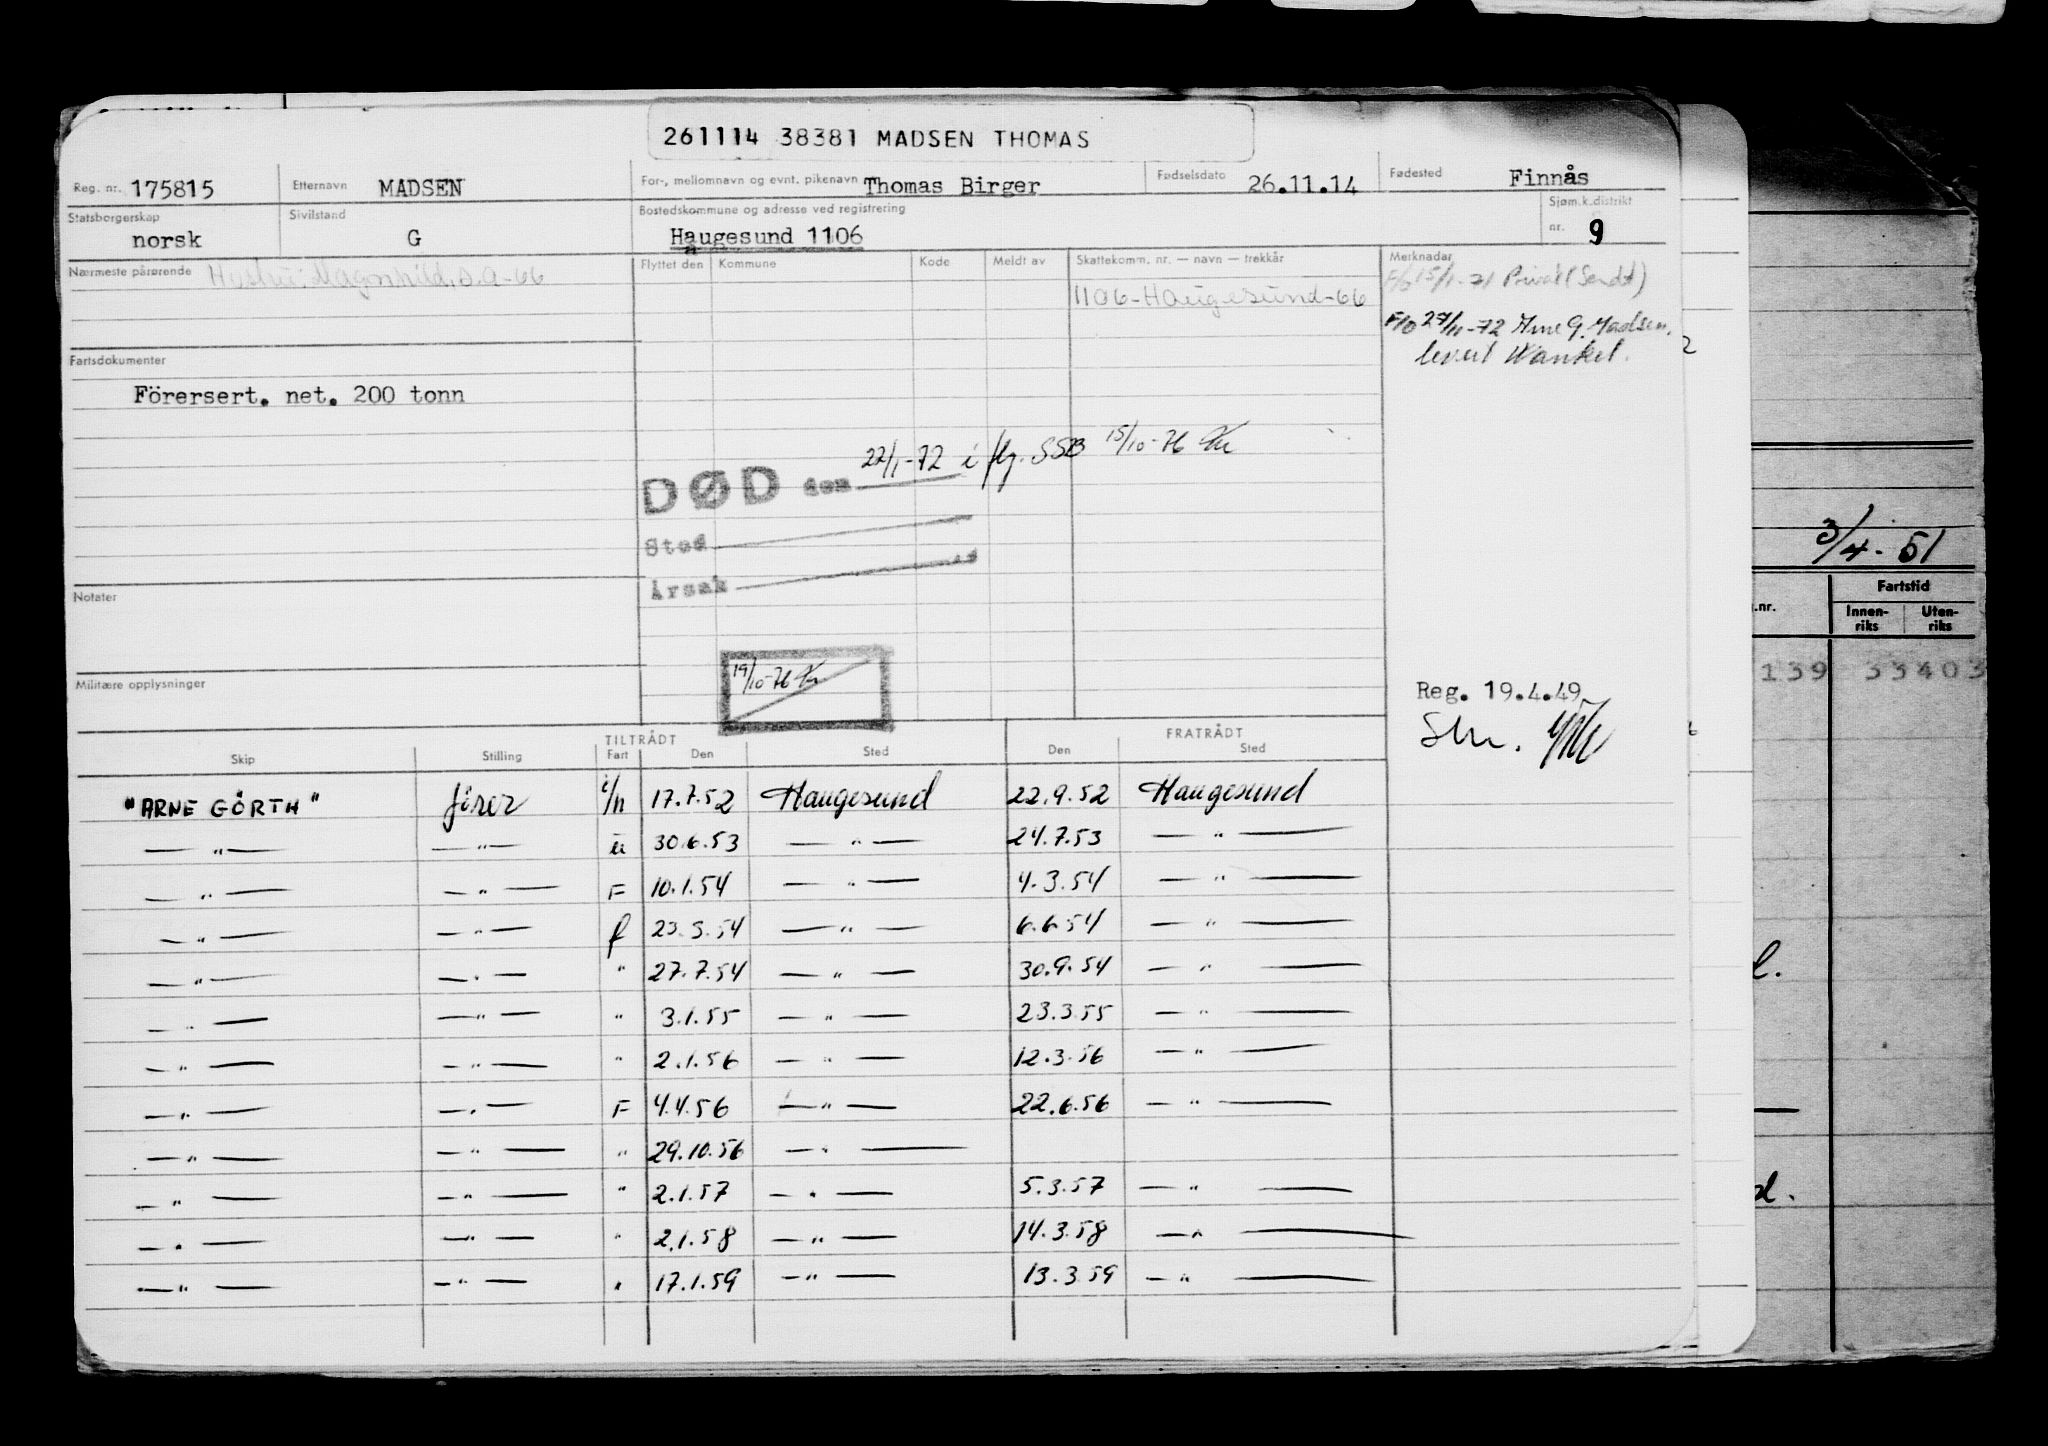 261114 38381 MADSEN THOMAS
Reg. nr. 175815 Etternavn MADSEN For-, mellomnavn og evnt. pikenavn Thomas Birger Fødselsdato 26.11.14 Fødested Finnås
Statsborgerskap norsk Sivilstand G Bostedskommune og adresse ved registrering Haugesund 1106 Sjøm.k.distrikt nr. 9
Nærmeste pårørende Hustru: Magnhild, s.a-66 Flyttet den Kommune Kode Meldt av Skattekomm. nr. — navn — trekkår Merknader
1106-Haugesund-66
F/o 15/1-71 Privat (Sendt)
F/o 27/11-72 Arne G. Madsen,
levert Wankel.
2
Fartsdokumenter
Förersert. net. 200 tonn
DØD den 22/1-72 i flg. SSB 15/10-76
Sted
Årsak
3/4-51
Notater
.nr. Fartstid
Innen-riks Uten-riks
139 33403
Militære opplysninger
19/10-76
Reg. 19.4.49
TILTRÅDT FRATRÅDT
Skip Stilling Fart Den Sted Den Sted
"ARNE GÖRTH" förer i/n 17.7.52 Haugesund 22.9.52 Haugesund
— " — — " — u 30.6.53 — " — 24.7.53 — " —
— " — — " — F 10.1.54 — " — 4.3.54 — " —
— " — — " — f 23.3.54 — " — 6.6.54 — " —
— " — — " — " 27.7.54 — " — 30.9.54 — " —
l.
— " — — " — " 3.1.55 — " — 23.3.55 — " —
— " — — " — " 2.1.56 — " — 12.3.56 — " —
— " — — " — F 4.4.56 — " — 22.6.56 — " —
— " — — " — " 29.10.56 — " —
— " — — " — " 2.1.57 — " — 5.3.57 — " —
d.
— " — — " — " 2.1.58 — " — 14.3.58 — " —
— " — — " — " 17.1.59 — " — 13.3.59 — " —